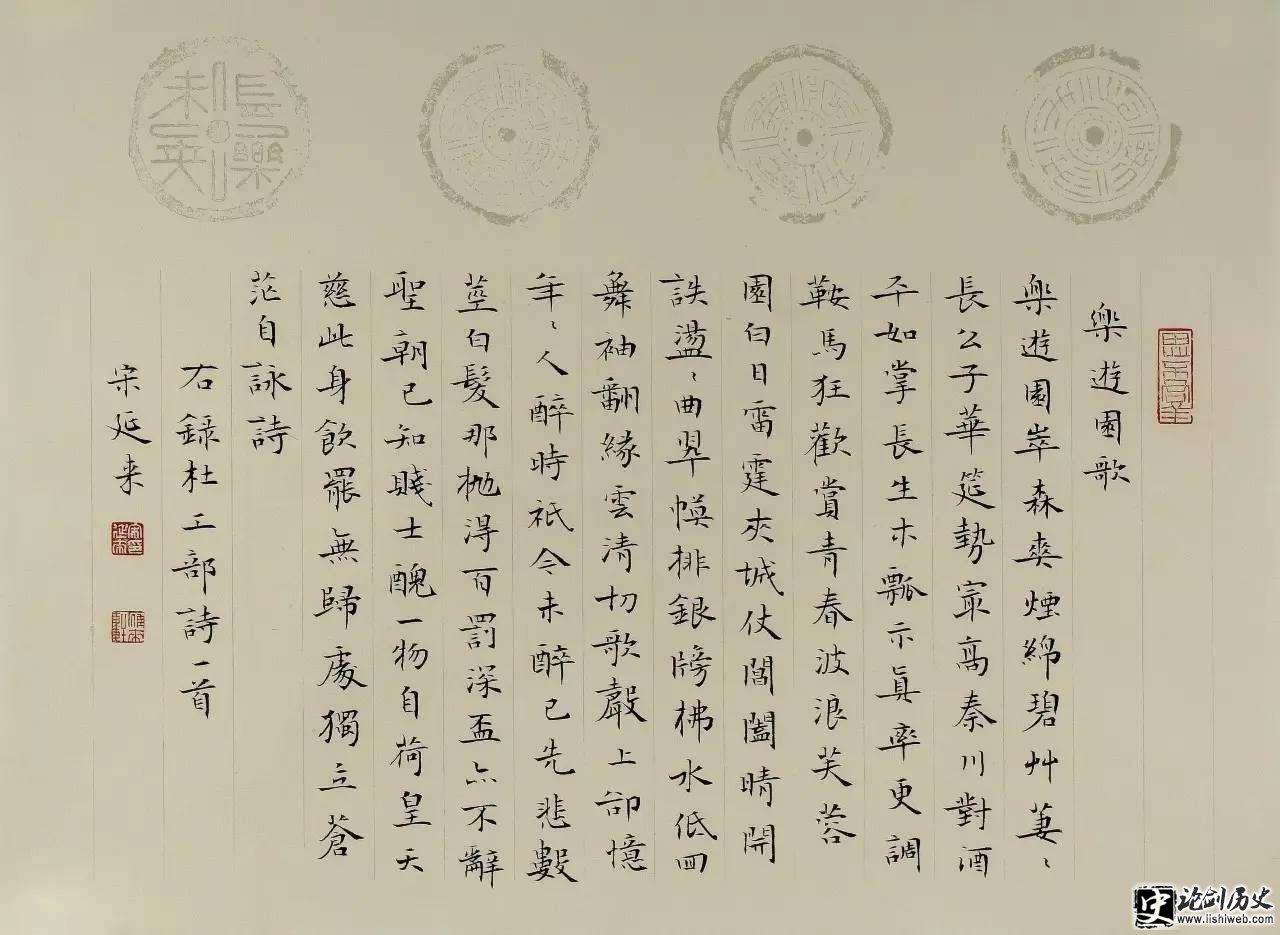 樂遊園歌
樂遊園崒森爽煙綿碧艸萋〻
長公子華筵勢冣高秦川對酒
平如掌長生木瓢示真率更調
鞍馬狂歡賞青春波浪芙蓉
園白日雷霆夾城仗閶闔晴開
詄盪〻曲翠幙排銀牓拂水低回
舞袖翻緣雲清切歌聲上卻憶
年〻人醉時祇今未醉已先悲數
莖白髮那抛得百罰深盃亦不辭
聖朝已知賤士醜一物自荷皇天
慈此身飲罷無歸處獨立蒼
茫自詠詩
右錄杜工部詩一首
宋延来
長樂未央
史 论剑历史
www.lishiweb.com